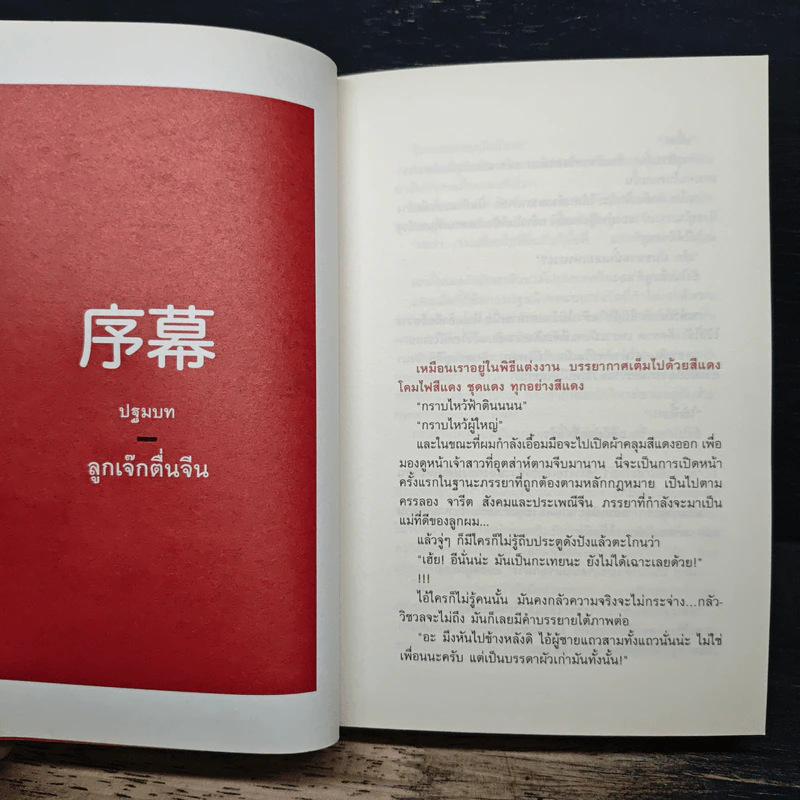 序幕
ปฐมบท
ลูกเจ๊กตื่นจีน
เหมือนเราอยู่ในพิธีแต่งงาน บรรยากาศเต็มไปด้วยสีแดง
โคมไฟสีแดง ชุดแดง ทุกอย่างสีแดง
"กราบไหว้ฟ้าดินนนน"
"กราบไหว้ผู้ใหญ่"
และในขณะที่ผมกำลังเอื้อมมือจะไปเปิดผ้าคลุมสีแดงออก เพื่อ
มองดูหน้าเจ้าสาวที่อุตส่าห์ตามจีบมานาน นี่จะเป็นการเปิดหน้า
ครั้งแรกในฐานะภรรยาที่ถูกต้องตามหลักกฎหมาย เป็นไปตาม
ครรลอง จารีต สังคมและประเพณีจีน ภรรยาที่กำลังจะมาเป็น
แม่ที่ดีของลูกผม...
แล้วจู่ๆ ก็มีใครก็ไม่รู้ถีบประตูดังปังแล้วตะโกนว่า
"เฮ้ย! อีนั่นน่ะ มันเป็นกะเทยนะ ยังไม่ได้เฉาะเลยด้วย!"
!!!
ไอ้ใครก็ไม่รู้คนนั้น มันคงกลัวความจริงจะไม่กระจ่าง...กลัว-
วิชวลจะไม่ถึง มันก็เลยมีคำบรรยายใต้ภาพต่อ
"อะ มึงหันไปข้างหลังดิ ไอ้ผู้ชายแถวสามทั้งแถวนั่นน่ะ ไม่ใช่
เพื่อนนะครับ แต่เป็นบรรดาผัวเก่ามันทั้งนั้น!"